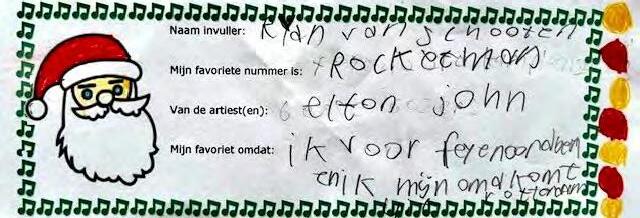 Naam invuller: Ryan van schooten
Mijn favoriete nummer is: Rocketman
Van de artiest(en): elton john
Mijn favoriet omdat: ik voor feyenoord ben
en ik mijn oma komt
rotterdam